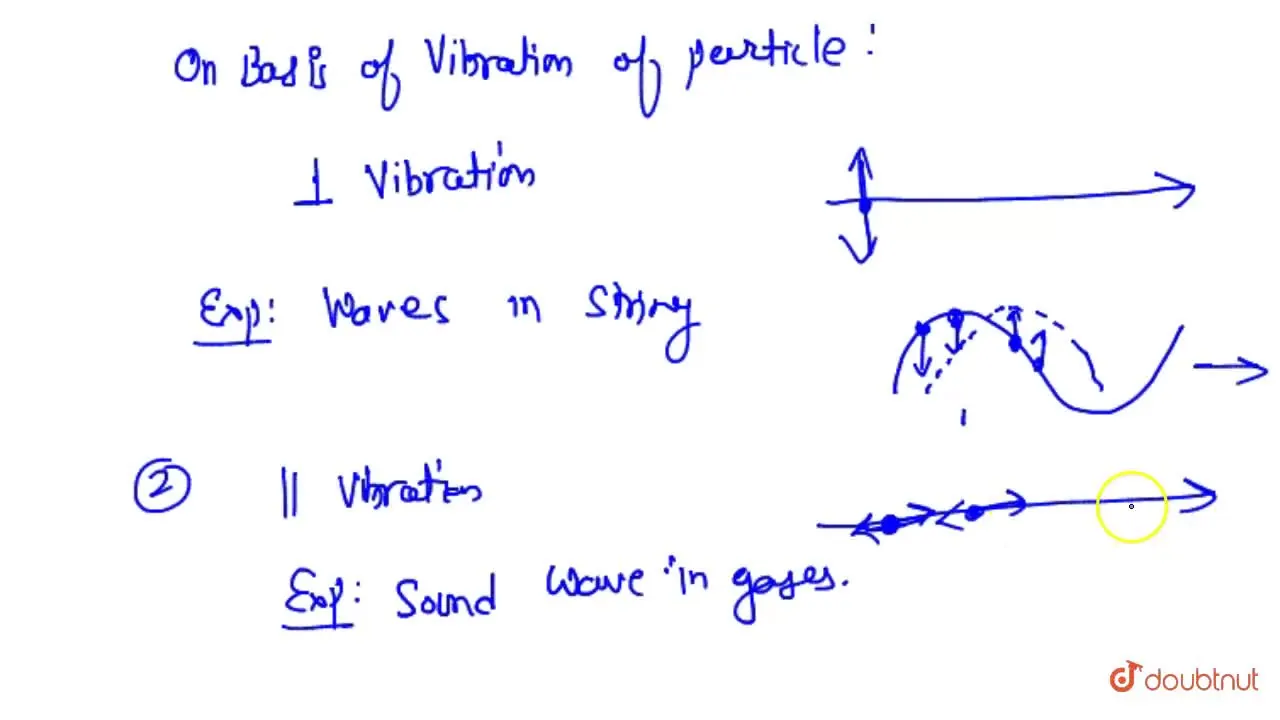 On Basis of Vibration of particle:
⊥ Vibration
Exp: Waves in String
② || Vibration
Exp: Sound wave in gases.
doubtnut